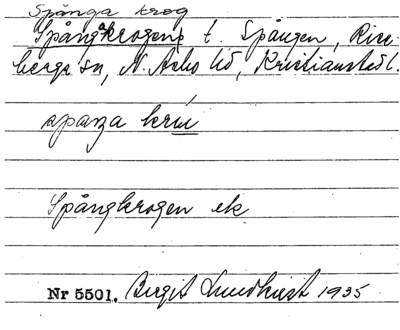 Spånga krog
Spångakrogen, t. Spången, Rise-
berga sn, N. Åsbo hd, Kristianstads l.
spaŋa krú
Spångkrogen ek
Nr 5501. Birgit Lundkvist 1935